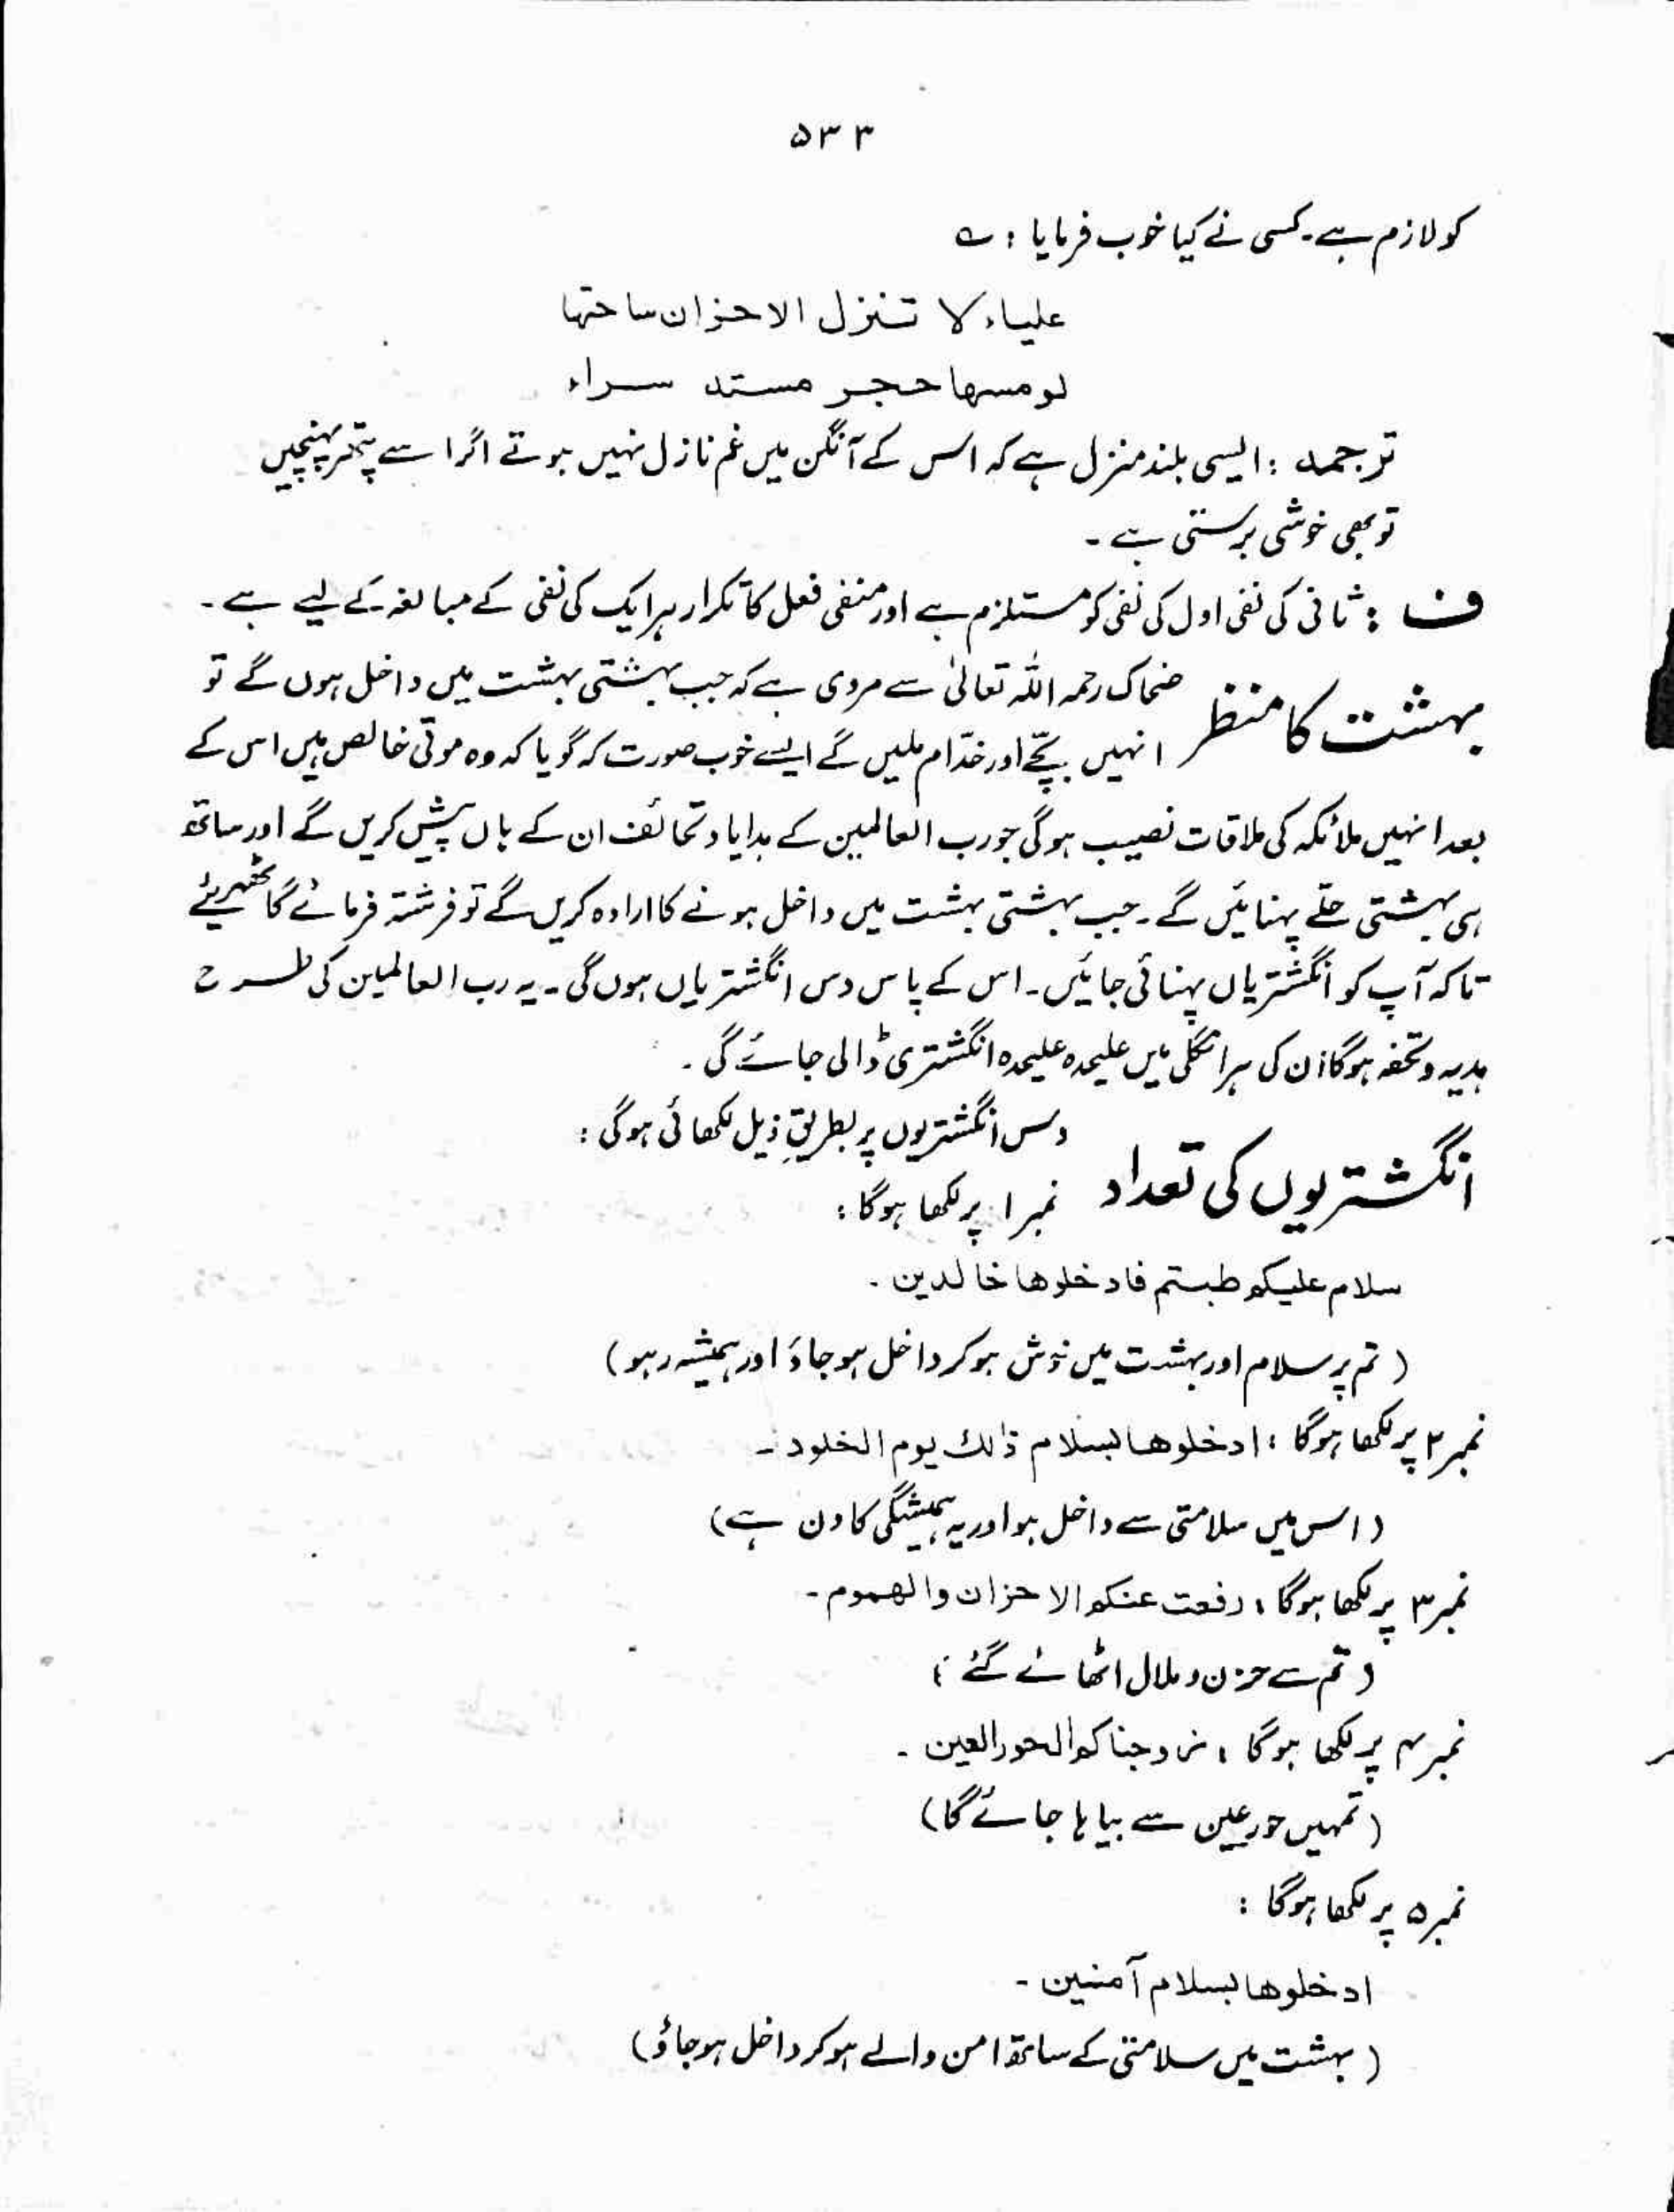 ۵۳۳
کو لازم ہے۔ کسی نے کیا خوب فرمایا : ؎
علیاء لا تنزل الاحزان ساحتها
لو مسها حجر مستہ سراء
ترجمہ : ایسی بلند منزل ہے کہ اس کے آنگن میں غم نازل نہیں ہوتے اگر اسے پتھر پہنچیں
تو بھی خوشی برستی ہے ۔
ف : ثانی کی نفی اول کی نفی کو مستلزم ہے اور منفی فعل کا تکرار ہر ایک کی نفی کے مبالغہ کے لیے ہے ۔
بہشت کا منظر ضحاک رحمہ اللہ تعالیٰ سے مروی ہے کہ جب بہشتی بہشت میں داخل ہوں گے تو
انہیں بچّے اور خدّام ملیں گے ایسے خوب صورت کہ گویا کہ وہ موتی خالص ہیں اس کے
بعد انہیں ملائکہ کی ملاقات نصیب ہوگی جو رب العالمین کے ہدایا و تحائف ان کے ہاں پیش کریں گے اور ساتھ
ہی بہشتی حلّے پہنائیں گے ۔ جب بہشتی بہشت میں داخل ہونے کا ارادہ کریں گے تو فرشتہ فرمائے گا ٹھہریئے
تاکہ آپ کو انگشتریاں پہنائی جائیں ۔ اس کے پاس دس انگشتریاں ہوں گی ۔ یہ رب العالمین کی طرح
ہدیہ و تحفہ ہوگا ان کی ہر انگلی میں علیحدہ علیحدہ انگشتری ڈالی جائے گی ۔
انگشتریوں کی تعداد دس انگشتریوں پر بطریقِ ذیل لکھائی ہوگی :
نمبر ۱ پر لکھا ہوگا :
سلام علیکم طبتم فادخلوها خالدین ۔
( تم پر سلام اور بہشت میں خوش ہو کر داخل ہو جاؤ اور ہمیشہ رہو )
نمبر ۲ پر لکھا ہوگا : ادخلوها بسلام ذالك یوم الخلود ۔
( اس میں سلامتی سے داخل ہو اور یہ ہمیشگی کا دن ہے )
نمبر ۳ پر لکھا ہوگا : رفعت عنکم الاحزان والهموم ۔
( تم سے حزن و ملال اٹھائے گئے )
نمبر ۴ پر لکھا ہوگا : زوجناکم الحور العین ۔
( تمہیں حور عین سے بیاہا جائے گا )
نمبر ۵ پر لکھا ہوگا :
ادخلوها بسلام آمنین ۔
( بہشت میں سلامتی کے ساتھ امن والے ہو کر داخل ہو جاؤ )